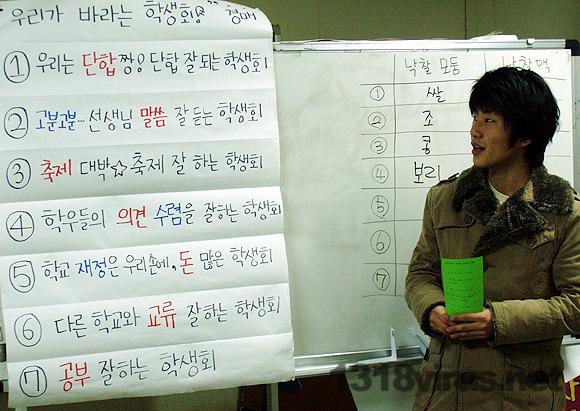 "우리가 바라는 학생회!" 경매
① 우리는 단합 짱! 단합 잘 되는 학생회
② 고분고분~ 선생님 말씀 잘 듣는 학생회
③ 축제 대박☆ 축제 잘 하는 학생회
④ 학우들의 의견 수렴을 잘하는 학생회
⑤ 학교 재정은 우리손에, 돈 많은 학생회
⑥ 다른 학교와 교류 잘하는 학생회
⑦ 공부 잘하는 학생회
낙찰 모둠 낙찰액
① 쌀
② 조
③ 콩
④ 보리
⑤
⑥
⑦
1318virus.net